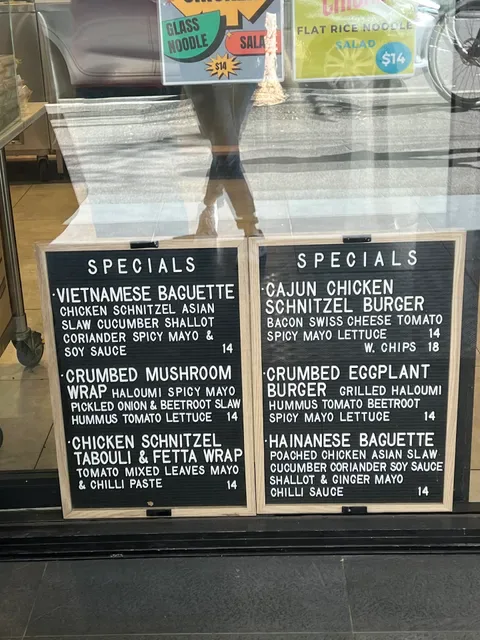 GLASS
NOODLE
SALAD
$14
FLAT RICE NOODLE
SALAD
$14
SPECIALS
VIETNAMESE BAGUETTE
CHICKEN SCHNITZEL ASIAN
SLAW CUCUMBER SHALLOT
CORIANDER SPICY MAYO &
SOY SAUCE 14
CRUMBED MUSHROOM
WRAP HALOUMI SPICY MAYO
PICKLED ONION & BEETROOT SLAW
HUMMUS TOMATO LETTUCE 14
CHICKEN SCHNITZEL
TABOULI & FETTA WRAP
TOMATO MIXED LEAVES MAYO
& CHILLI PASTE 14
SPECIALS
CAJUN CHICKEN
SCHNITZEL BURGER
BACON SWISS CHEESE TOMATO
SPICY MAYO LETTUCE 14
W. CHIPS 18
CRUMBED EGGPLANT
BURGER GRILLED HALOUMI
HUMMUS TOMATO BEETROOT
SPICY MAYO LETTUCE 14
HAINANESE BAGUETTE
POACHED CHICKEN ASIAN SLAW
CUCUMBER CORIANDER SOY SAUCE
SHALLOT & GINGER MAYO
CHILLI SAUCE 14